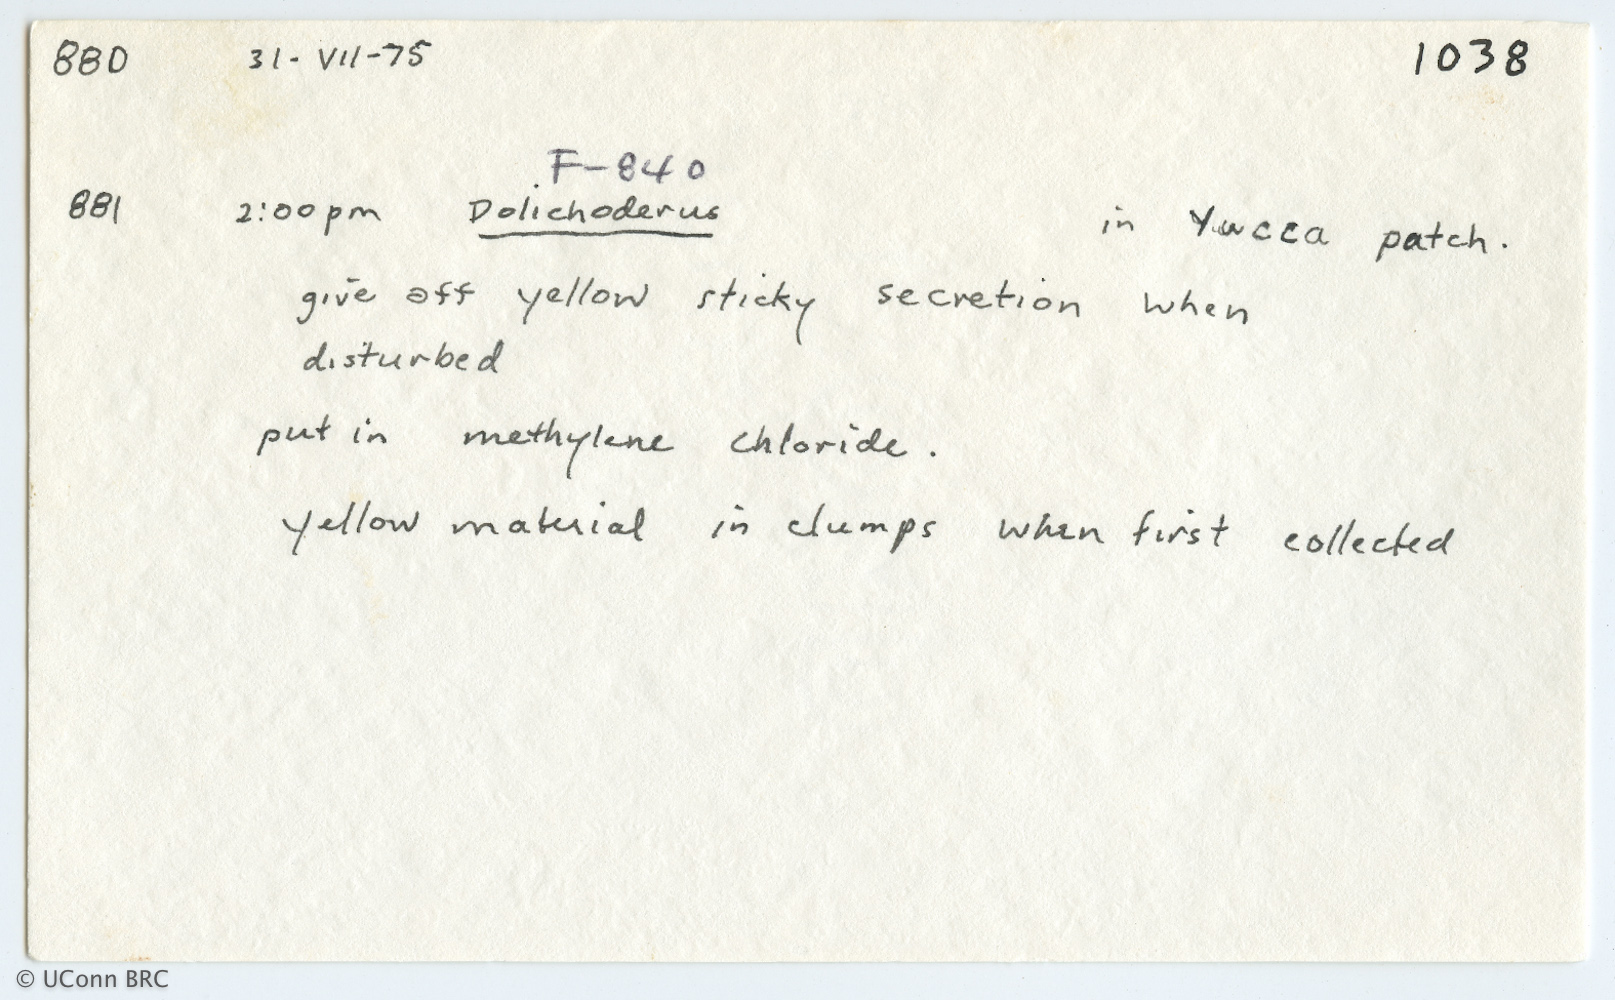 880 31-VII-75 1038
F-840
881 2:00pm Dolichoderus in Yucca patch.
give off yellow sticky secretion when
disturbed
put in methylene chloride.
yellow material in clumps when first collected
© UConn BRC